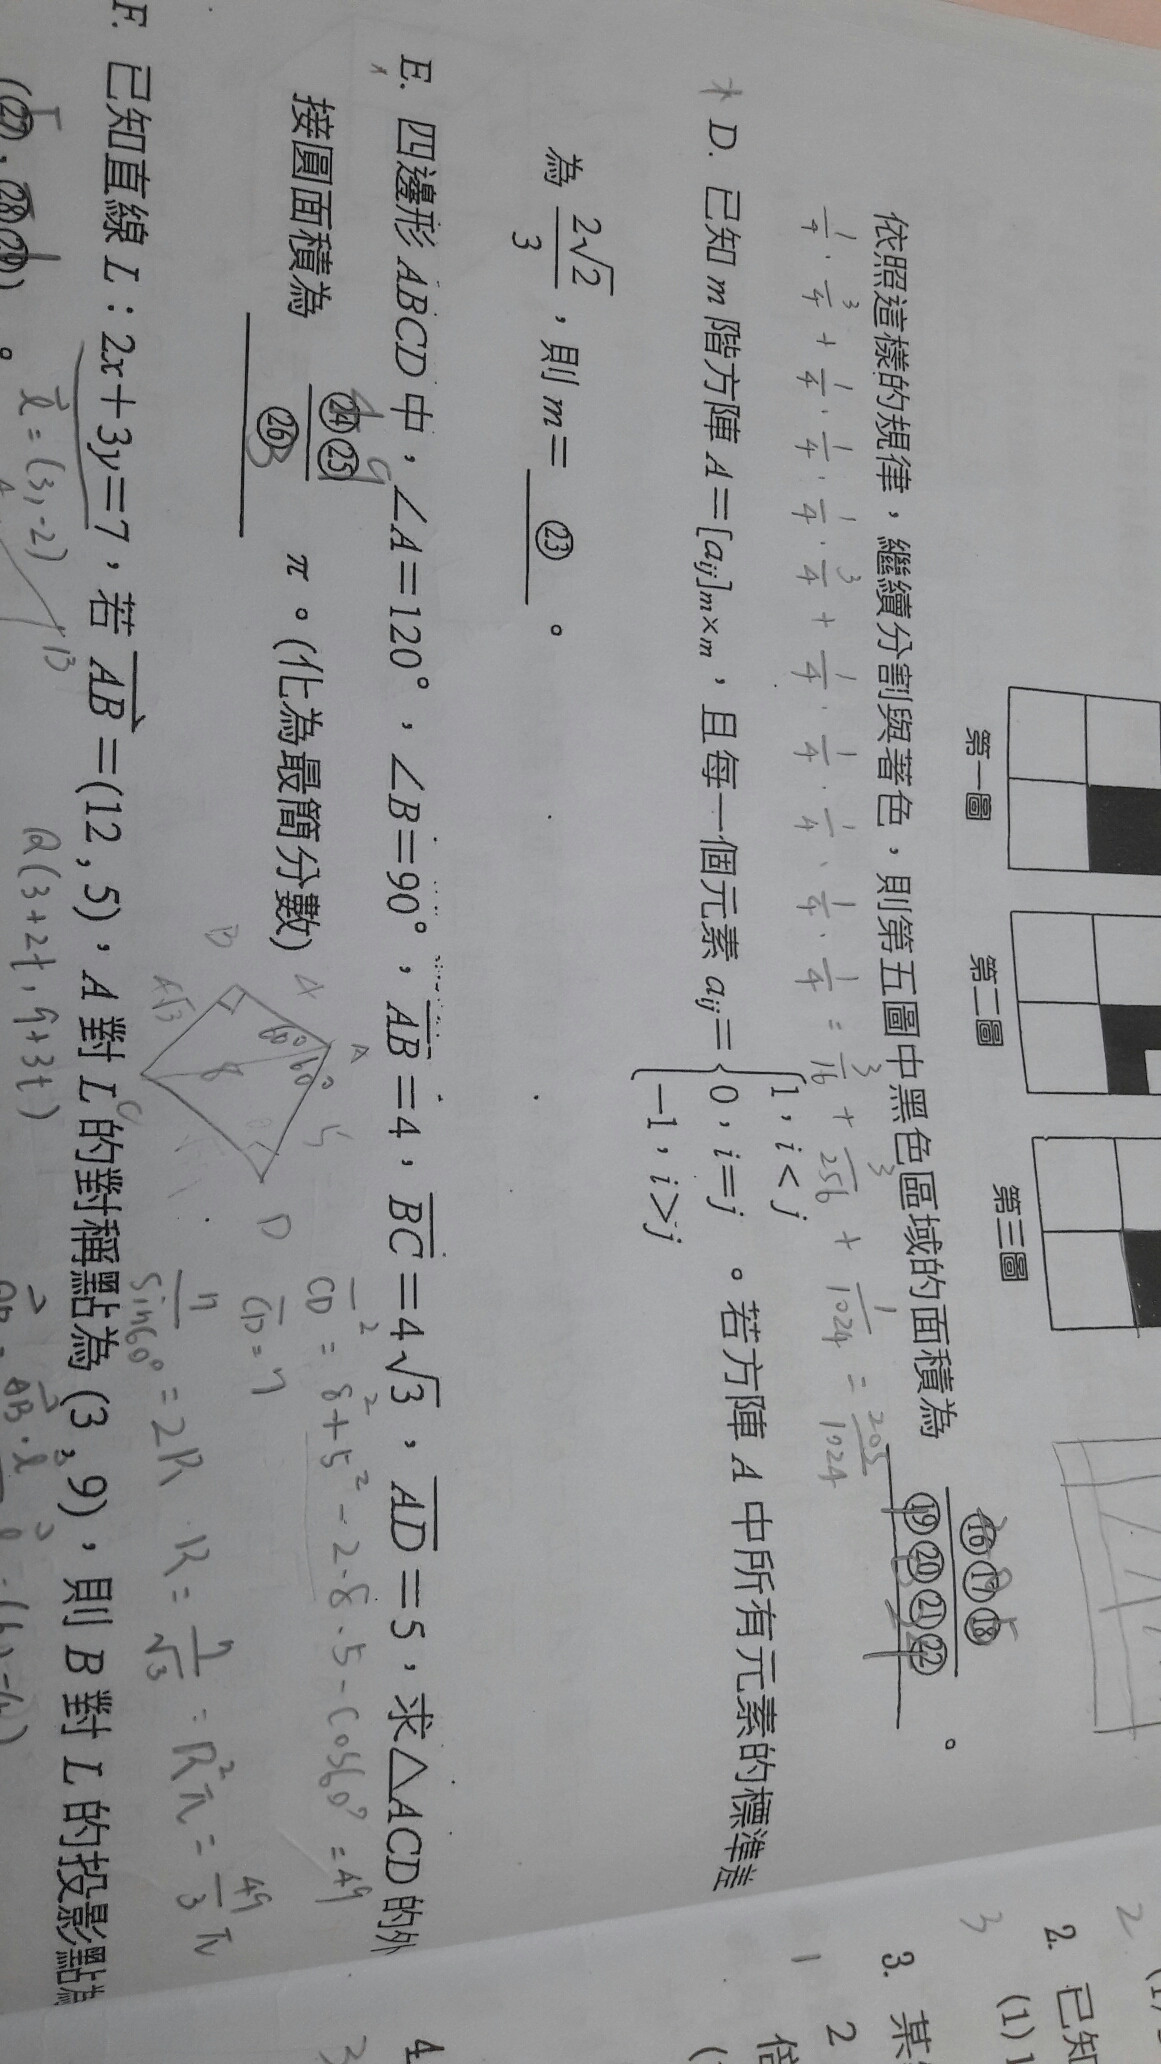 第一圖
第二圖
第三圖
依照這樣的規律，繼續分割與著色，則第五圖中黑色區域的面積為 ⑯⑰⑱
⑲⑳㉑㉒ 。
1/4 · 3/4 + 1/4 · 1/4 · 1/4 · 3/4 + 1/4 · 1/4 · 1/4 · 1/4 · 1/4 = 3/16 + 3/256 + 1/1024 = 205/1024
D. 已知 m 階方陣 A=[aij]m×m，且每一個元素 aij={ 1，i<j
0，i=j 。若方陣 A 中所有元素的標準差
-1，i>j
為 2√2/3，則 m= ㉓ 。
E. 四邊形 ABCD 中，∠A=120°，∠B=90°，AB=4，BC=4√3，AD=5，求△ACD 的外
接圓面積為 ㉔㉕/㉖ π。(化為最簡分數)
49
3
A
B
C
D
60° 60°
5
8
4√3
CD² = 8²+5²-2·8·5-cos60° = 49
CD = 7
7/sin60° = 2R R = 7/√3 = R²π = 49/3 π
F. 已知直線 L：2x+3y=7，若 AB=(12,5)，A 對 L 的對稱點為 (3,9)，則 B 對 L 的投影點為
(㉗,㉘㉙) 。
l = (3,-2)
13
Q(3+2t,9+3t)
2
2. 已知
(1)
3
3. 某
1
2
倍
4.
3